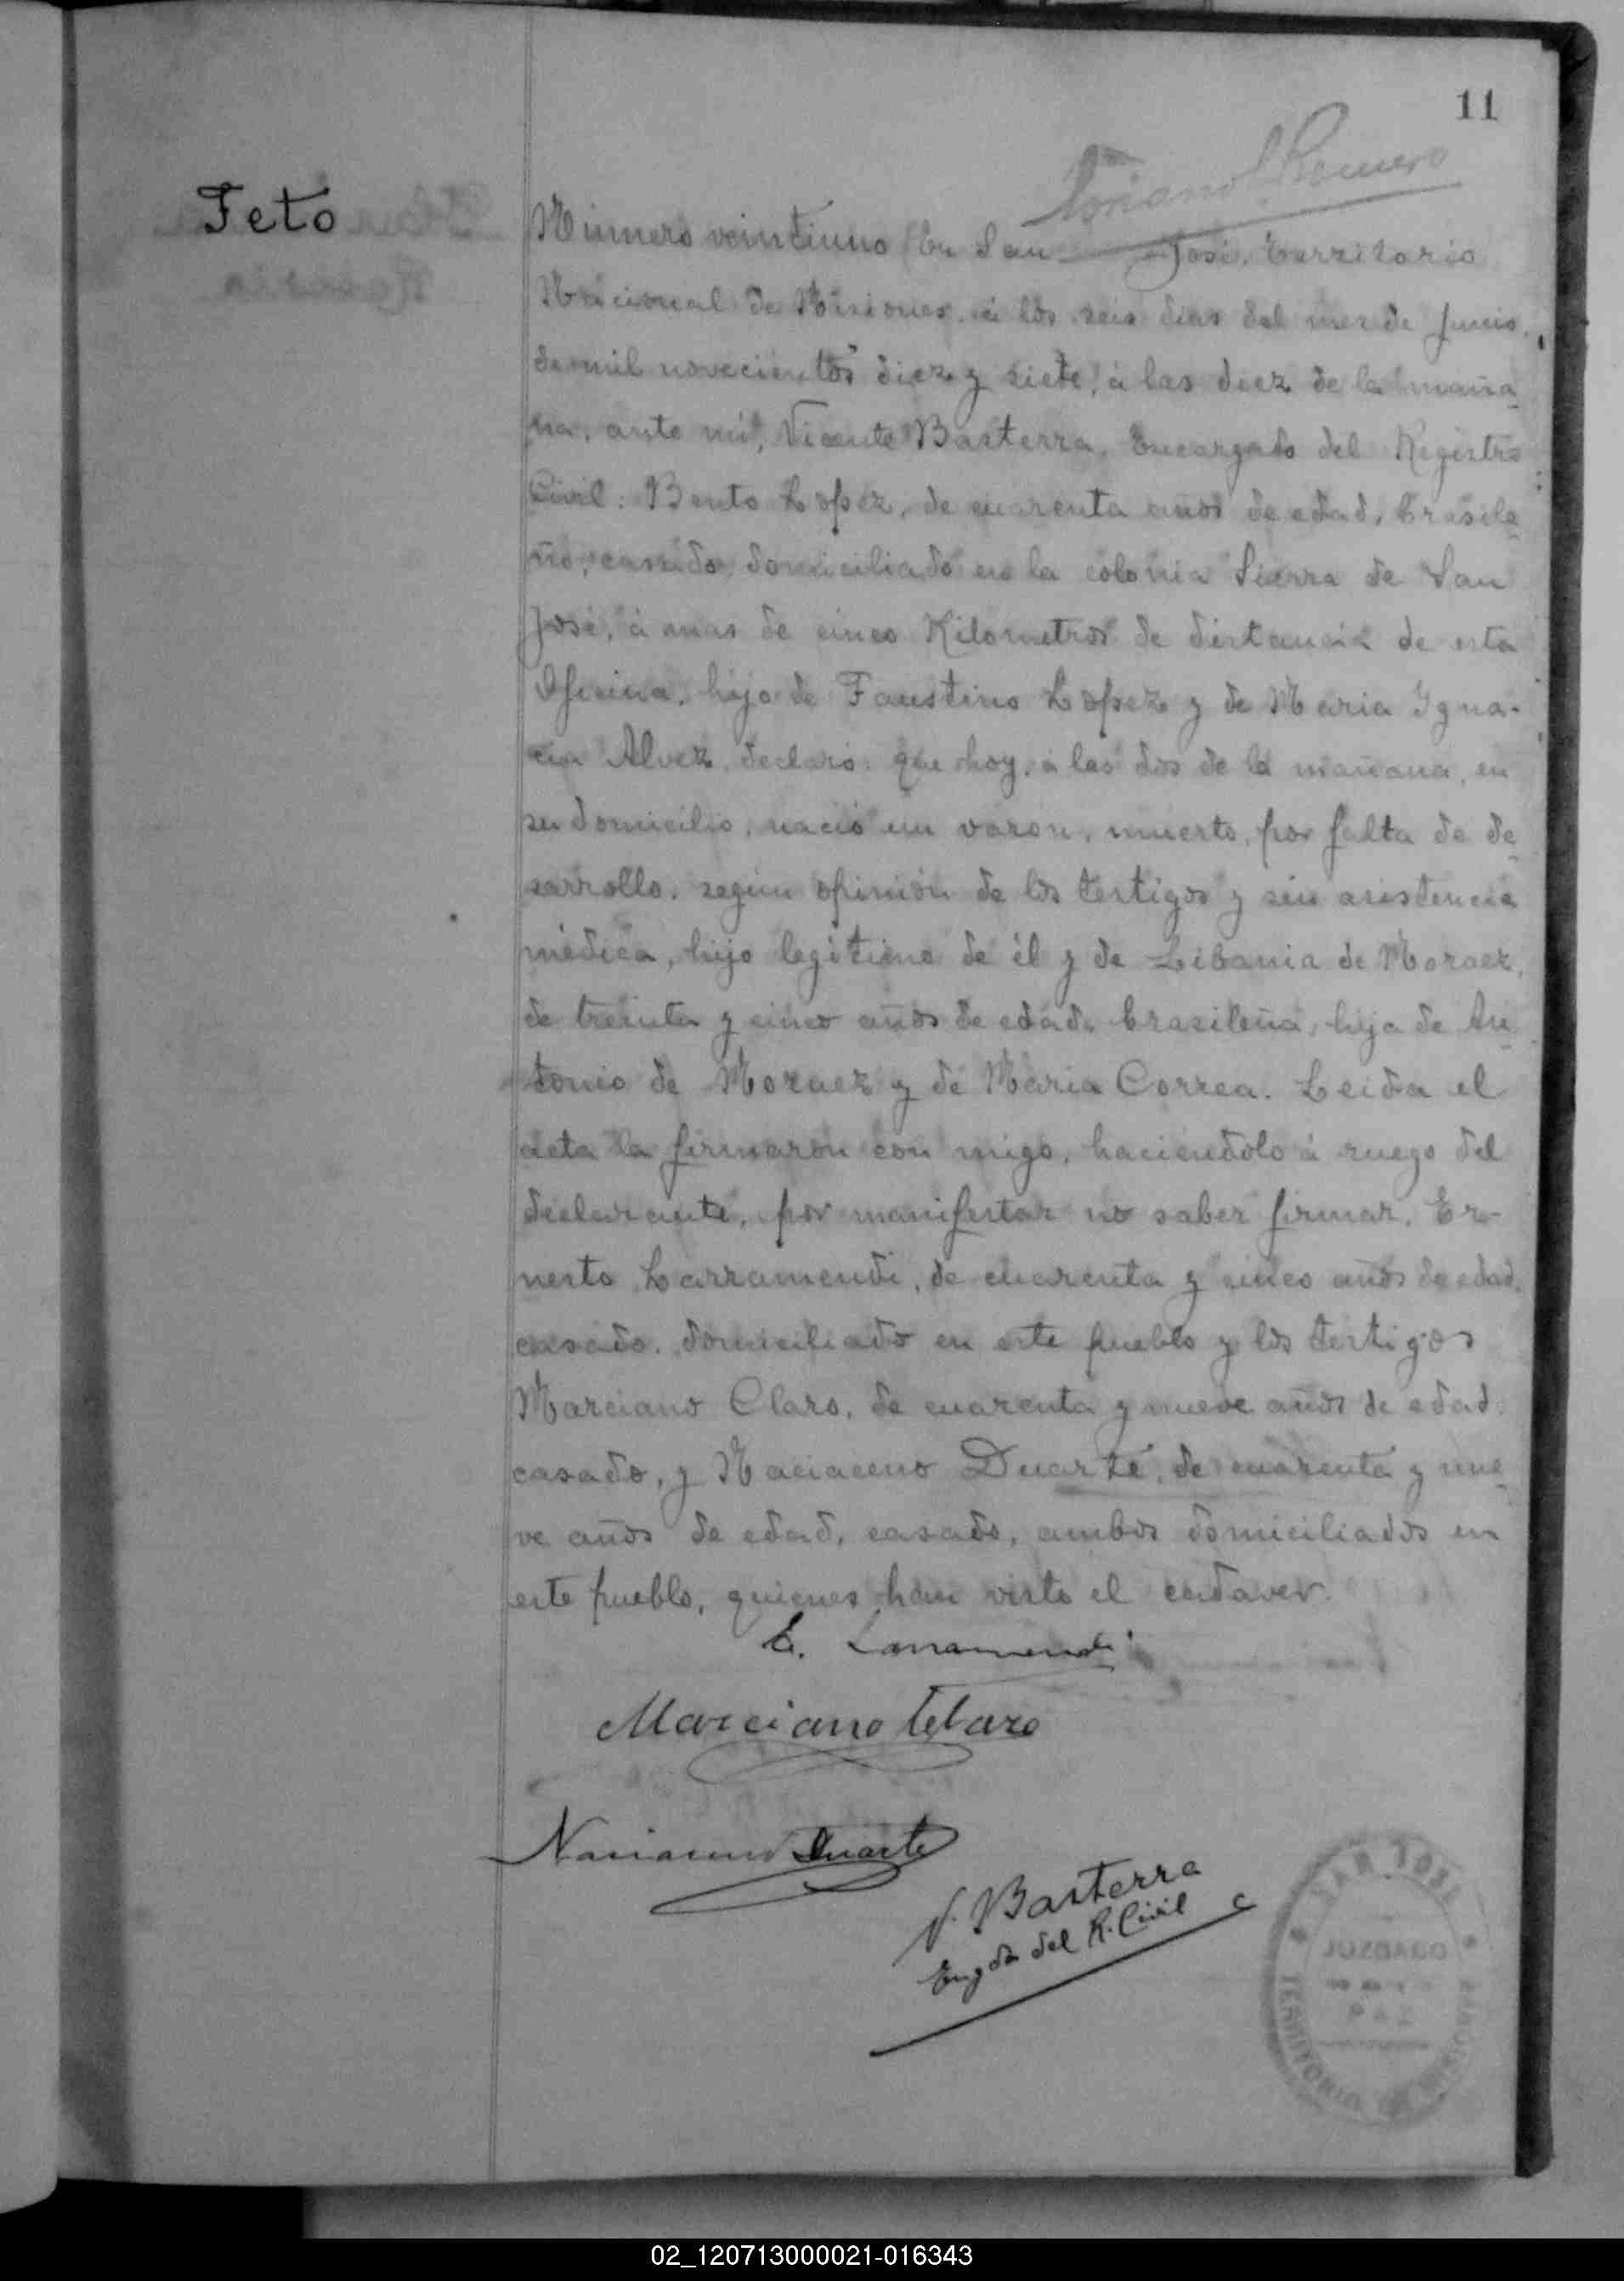 11
Feto
Romero
Número veintiuno En San José, Territorio
Nacional de Misiones, á los seis dias del mes de Junio
de mil novecientos diez y siete, á las diez de la maña
na, ante mí, Vicente Basterra, Encargado del Registro
Civil: Bento Lopez, de cuarenta años de edad, brasile
ño, casado, domiciliado en la colonia Sierra de San
José, á mas de cinco Kilometros de distancia de esta
Oficina, hijo de Faustino Lopez y de Maria Igna-
cia Alvez, declaró: que hoy, á las dos de la mañana, en
su domicilio, nació un varon, muerto, por falta de de
sarrollo, según opinión de los testigos y sin asistencia
médica, hijo legítimo de él y de Libania de Moraez,
de treinta y cinco años de edad, brasileña, hija de An
tonio de Moraez y de Maria Correa. Leida el
acta la firmaron con migo, haciendolo á ruego del
declarante, por manifestar no saber firmar, Er-
nesto Larramendi, de cuarenta y cinco años de edad,
casado, domiciliado en este pueblo y los testigos
Marciano Claro, de cuarenta y nueve años de edad
casado, y Naciaceno Duarte, de cuarenta y nue
ve años de edad, casado, ambos domiciliados en
este pueblo, quienes han visto el cadaver.
E. Larramendi
Marciano Claro
Duarte
V. Basterra
Engdo del R. Civil
SAN JOSE
JUZGADO
DE
PAZ
TERRITORIO DE MISIONES
02_120713000021-016343